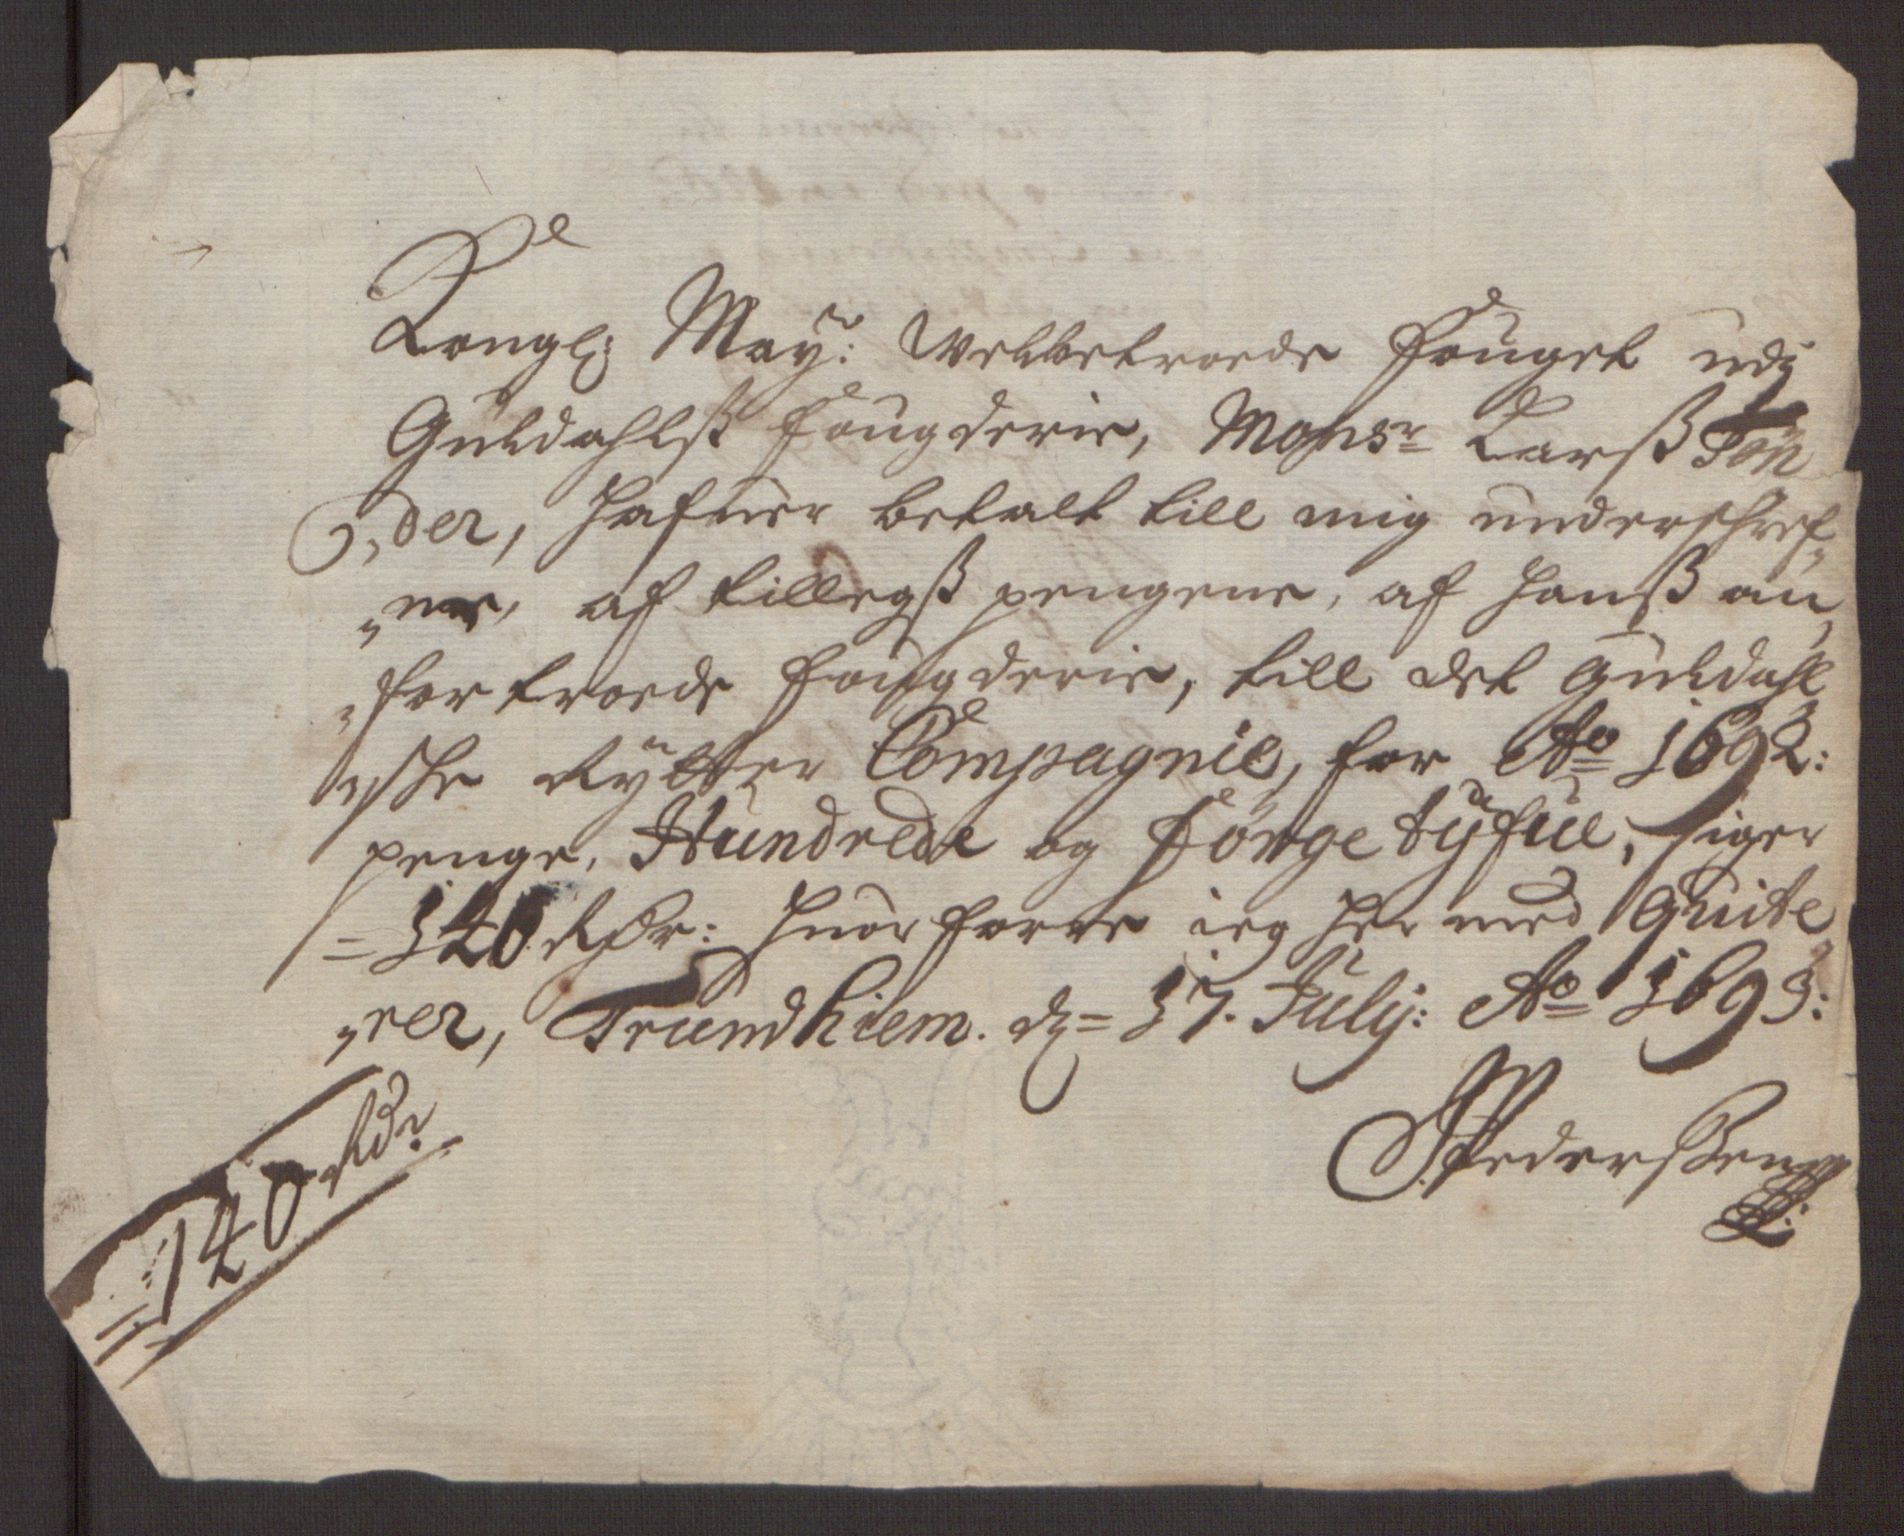 Kongl: May: Welbetroede Fouget udj
Guldahlß Fougderie, Monsr Larß Tøn
„der, hafuer betalt till mig underschref„
„ne, af tillegß pengene, af hanß an„
„fortroede Fougderie, till det Guldahl„
„sche Rytter Compagnie, for Ao 1692:
penge, Hundrede og Förgetyfue, siger
= 140 Rdr: huor forre ieg her med Quite„
„rer, Trundhiem. dj = 17. Julij: Ao 1693:
Pederßen
= 140 Rdr